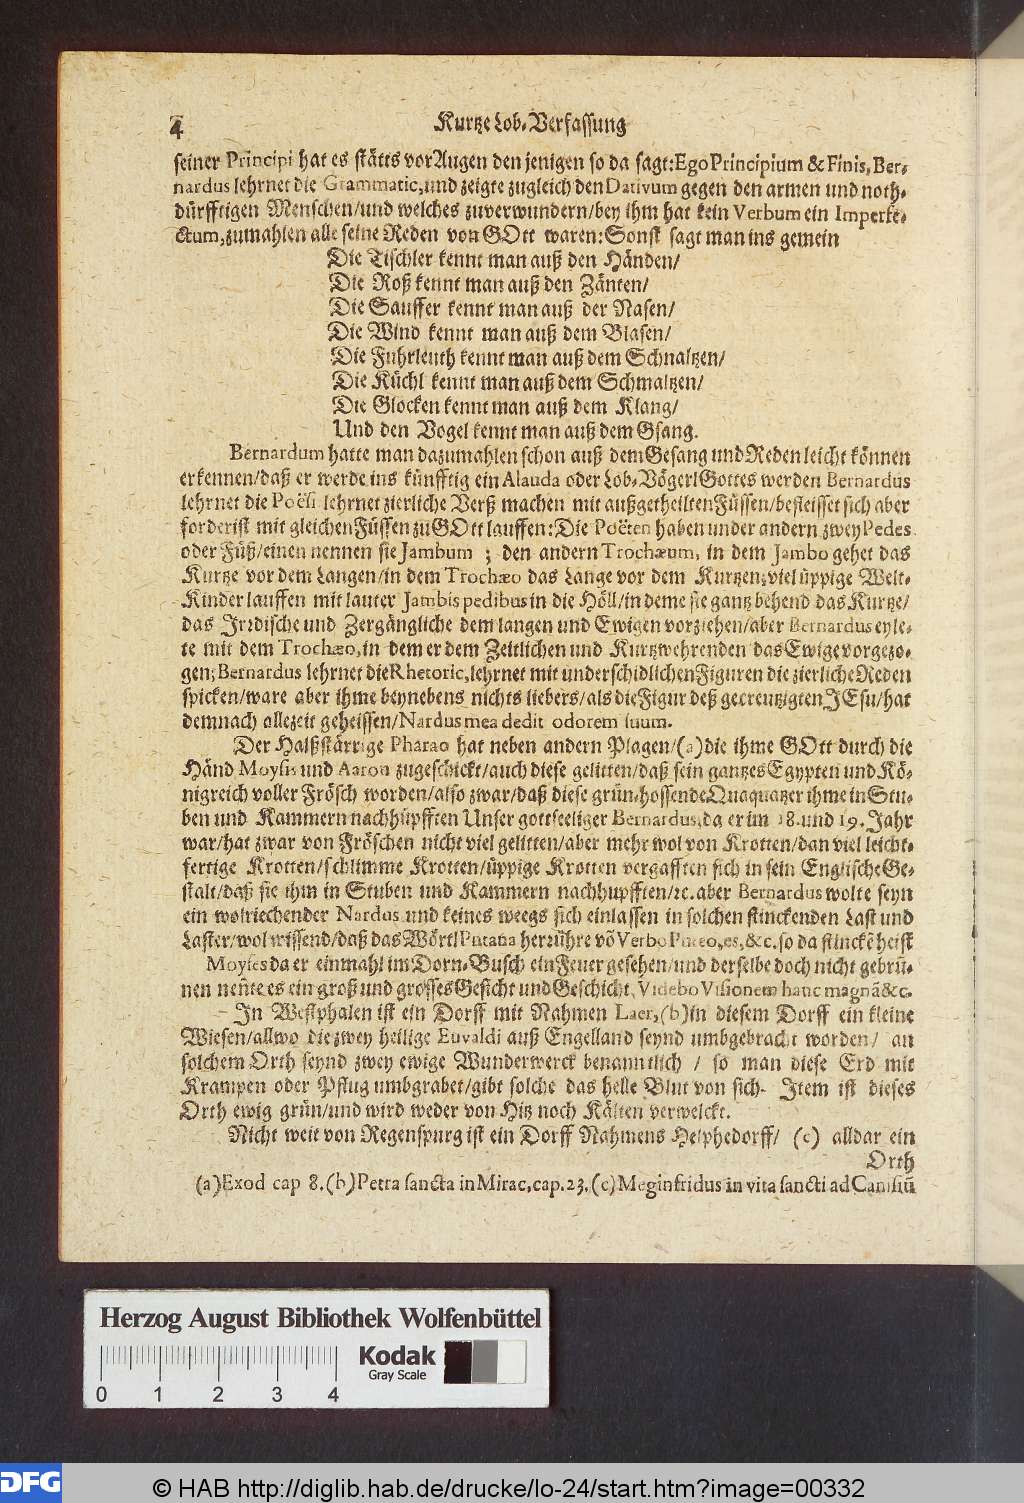 4
Kurtze Lob-Verfassung
seiner Principi hat es stätts vor Augen den jenigen so da sagt: Ego Principium & Finis, Ber-
nardus lehrnet die Grammatic, und zeigte zugleich den Dativum gegen den armen und noth-
dürfftigen Menschen/ und welches zuverwundern/ bey ihm hat kein Verbum ein Imperfe-
ctum, zumahlen alle seine Reden von GOtt waren: Sonst sagt man ins gemein
Die Tischler kennt man auß den Händen/
Die Roß kennt man auß den Zänten/
Die Sauffer kennt man auß der Nasen/
Die Wind kennt man auß dem Blasen/
Die Fuhrleuth kennt man auß dem Schnaltzen/
Die Küchl kennt man auß dem Schmaltzen/
Die Glocken kennt man auß dem Klang/
Und den Vogel kennt man auß dem Gsang.
Bernardum hatte man dazumahlen schon auß dem Gesang und Reden leicht können
erkennen/ daß er werde ins künfftig ein Alauda oder Lob-Vögerl Gottes werden Bernardus
lehrnet die Poësi lehrnet zierliche Verß machen mit außgetheilten Füssen/ befleisset sich aber
forderist mit gleichen Füssen zu GOtt lauffen: Die Poëten haben under andern zwey Pedes
oder Füß/ einen nennen sie Jambum ; den andern Trochæum, in dem Jambo gehet das
Kurtze vor dem Langen/ in dem Trochæo das Lange vor dem Kurtzen; viel üppige Welt-
Kinder lauffen mit lauter Jambis pedibus in die Höll/ in deme sie gantz behend das Kurtze/
das Irrdische und Zergängliche dem langen und Ewigen vorziehen/ aber Bernardus eyle-
te mit dem Trochæo, in dem er dem Zeitlichen und Kurtzwehrenden das Ewige vorgezo-
gen; Bernardus lehrnet die Rhetoric, lehrnet mit underschidlichen Figuren die zierliche Reden
spicken/ ware aber ihme beynebens nichts liebers/ als die Figur deß gecreutzigten JEsu/ hat
demnach allezeit geheissen/ Nardus mea dedit odorem suum.
Der Halßstärrige Pharao hat neben andern Plagen/ (a) die ihme GOtt durch die
Händ Moysis und Aaron zugeschickt/ auch diese gelitten/ daß sein gantzes Egypten und Kö-
nigreich voller Frösch worden/ also zwar/ daß diese grün-hossende Quaquatzer ihme in Stu-
ben und Kammern nachhüpfften Unser gottseeliger Bernardus, da er im 18. und 19. Jahr
war/ hat zwar von Fröschen nicht viel gelitten/ aber mehr wol von Krotten/ dan viel leicht-
fertige Krotten/ schlimme Krotten/ üppige Krotten vergafften sich in sein Englische Ge-
stalt/ daß sie ihm in Stuben und Kammern nachhupfften/ ꝛc. aber Bernardus wolte seyn
ein wolriechender Nardus, und keines weegs sich einlassen in solchen stinckenden Last und
Laster/ wol wissend/ daß das Wörtl Putana herrühre võ Verbo Puteo, es, &c. so da stinckẽ heist
Moyses da er einmahl im Dorn-Busch ein Feuer gesehen/ und derselbe doch nicht gebrũ-
nen neñte es ein groß und grosses Gesicht und Geschicht, Videbo Visionem hanc magnã &c.
In Westphalen ist ein Dorff mit Nahmen Laer, (b) in diesem Dorff ein kleine
Wiesen/ allwo die zwey heilige Euvaldi auß Engelland seynd umbgebracht worden/ an
solchem Orth seynd zwey ewige Wunderwerck benanntlich / so man diese Erd mit
Krampen oder Pflug umbgrabet/ gibt solche das helle Blut von sich. Item ist dieses
Orth ewig grün/ und wird weder von Hitz noch Kälten verwelckt.
Nicht weit von Regenspurg ist ein Dorff Nahmens Helphedorff/ (c) alldar ein
Orth
(a) Exod cap 8. (b) Petra sancta in Mirac, cap. 23. (c) Meginfridus in vita sancti ad Canisiũ
Herzog August Bibliothek Wolfenbüttel
0 1 2 3 4
Kodak
Gray Scale
DFG
© HAB http://diglib.hab.de/drucke/lo-24/start.htm?image=00332